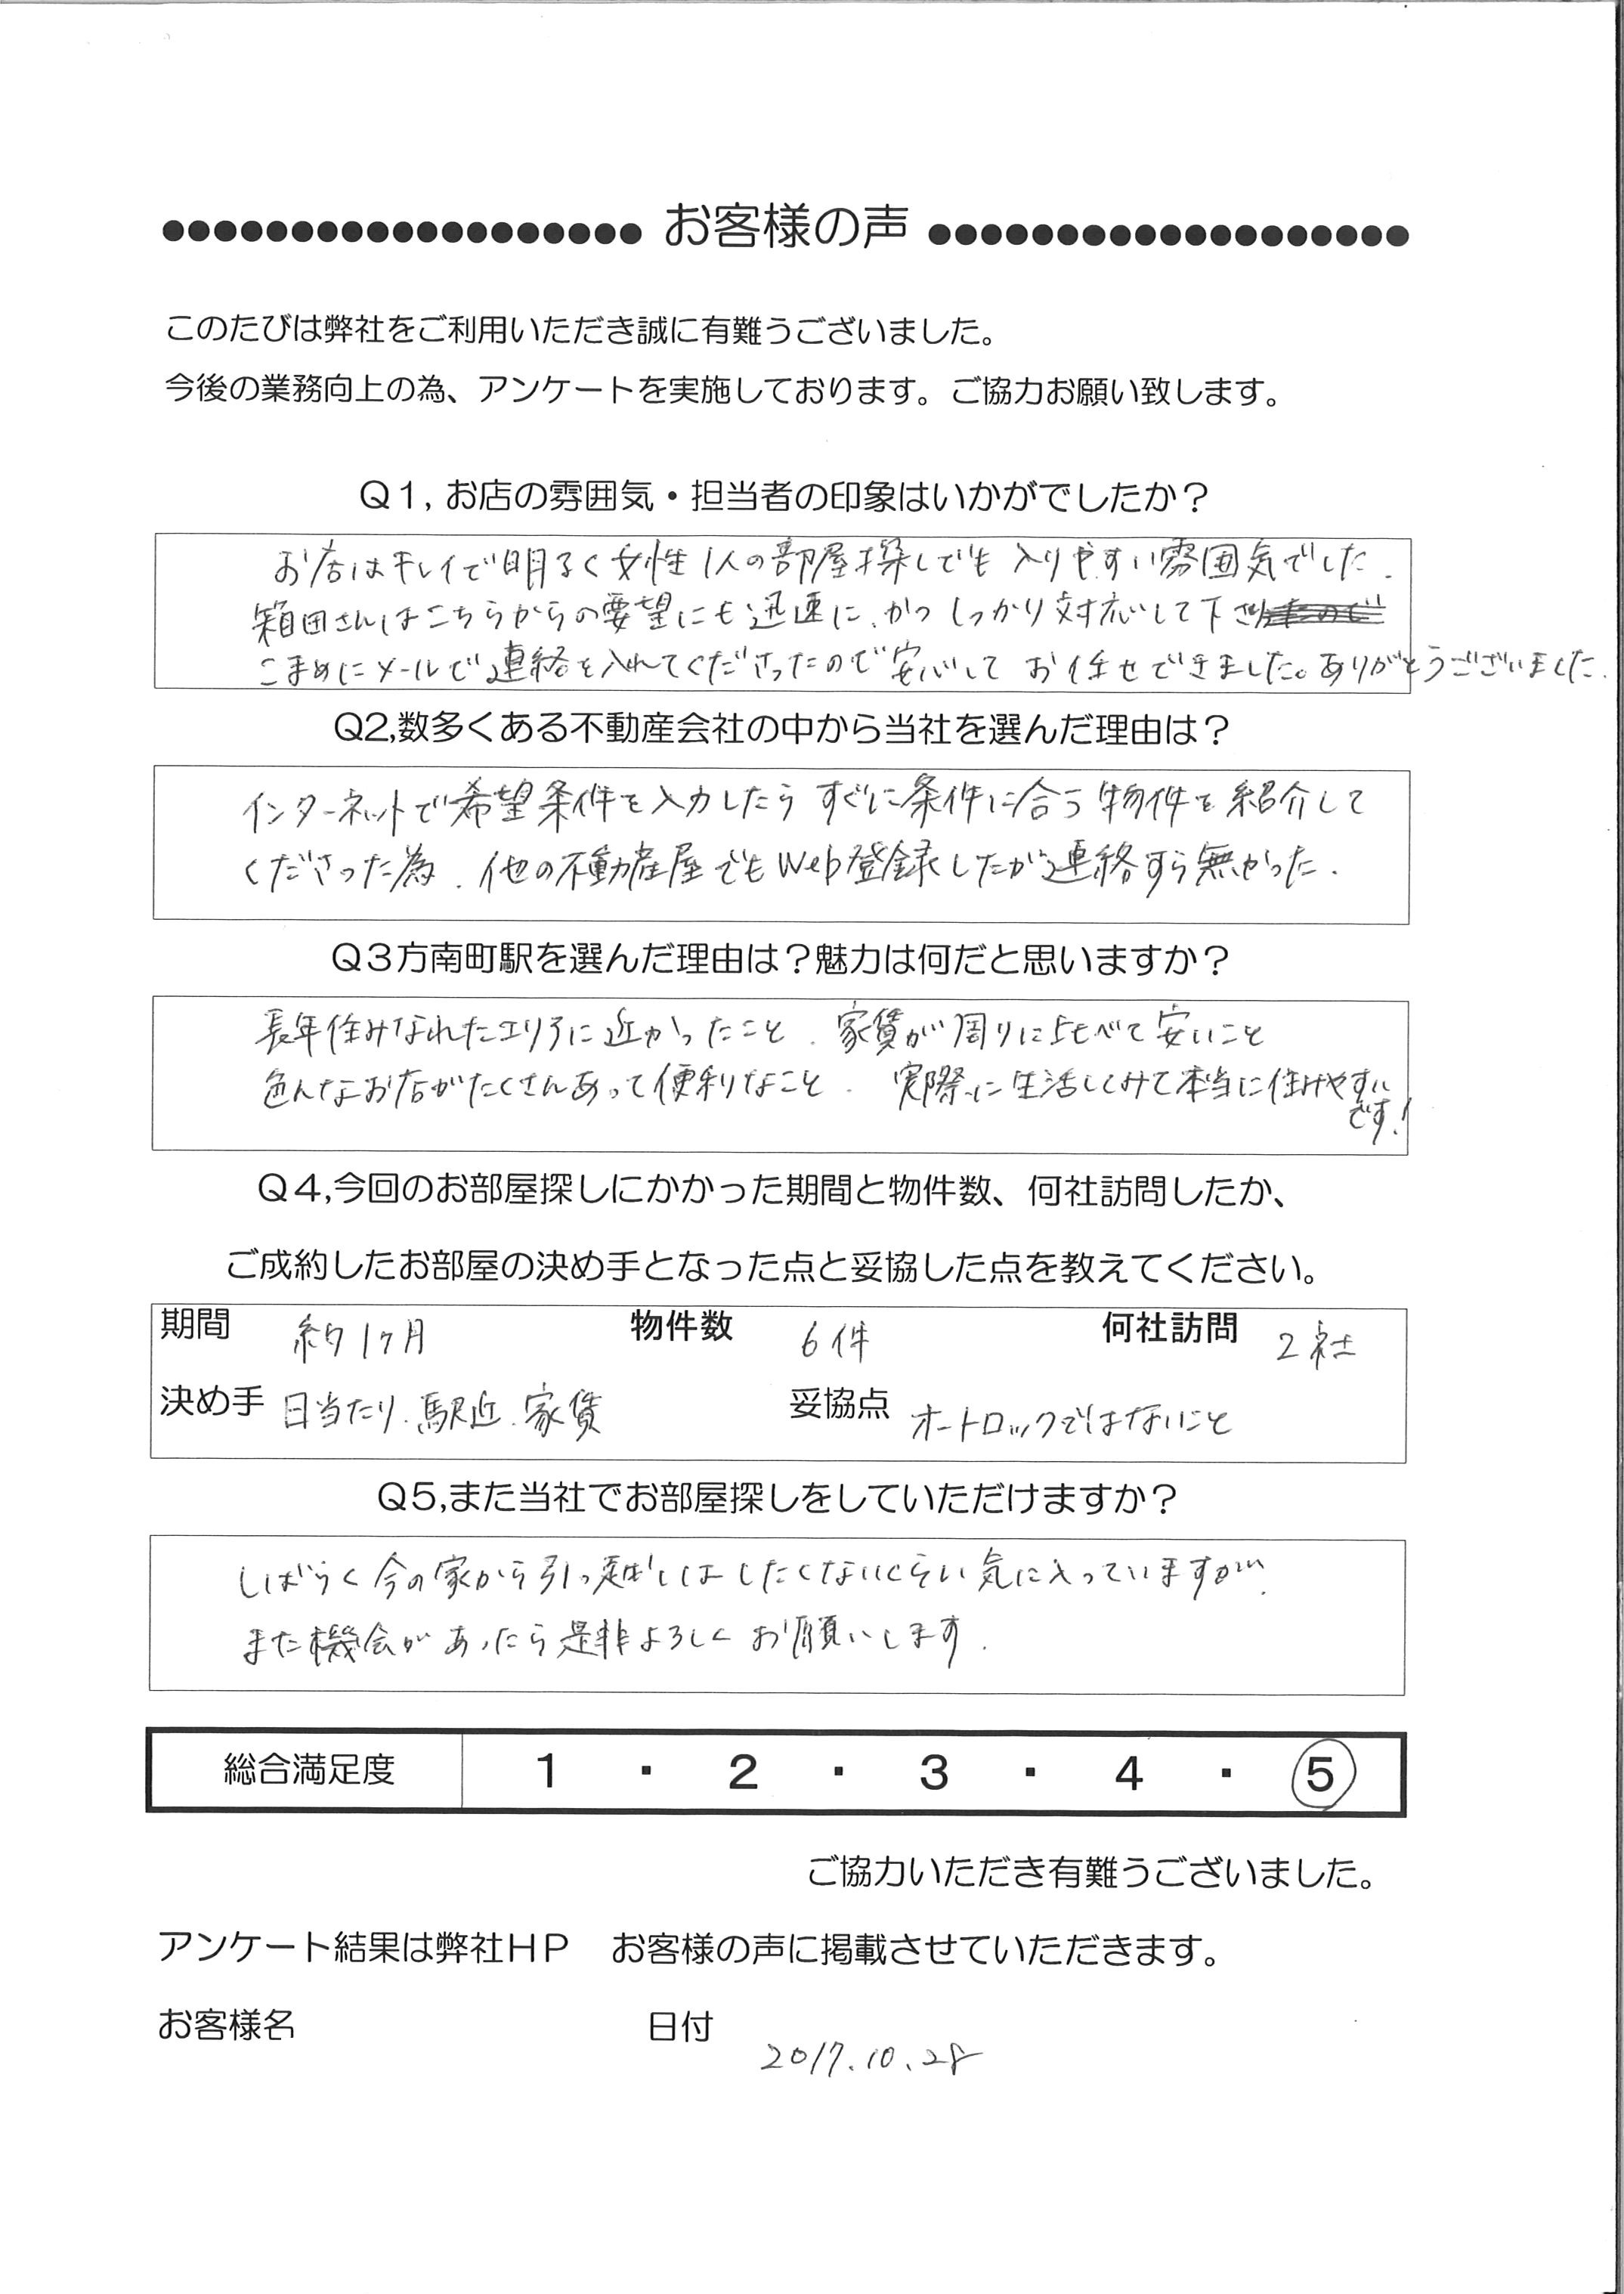 ●●●●●●●●●●●●●●●●●●● お客様の声 ●●●●●●●●●●●●●●●●●●●
このたびは弊社をご利用いただき誠に有難うございました。
今後の業務向上の為、アンケートを実施しております。ご協力お願い致します。
Q1,お店の雰囲気・担当者の印象はいかがでしたか?
お店はキレイで明るく女性1人の部屋探しでも入りやすい雰囲気でした.
箱田さんはこちらからの要望にも迅速に、かつしっかり対応して下さり
こまめにメールで連絡を入れてくださったので安心して お任せできました。ありがとうございました.
Q2,数多くある不動産会社の中から当社を選んだ理由は?
インターネットで希望条件を入力したら すぐに条件に合う物件を紹介して
くださった為. 他の不動産屋でもWeb登録したが連絡すら無かった.
Q3方南町駅を選んだ理由は?魅力は何だと思いますか?
長年住みなれたエリアに近かったこと. 家賃が周りに比べて安いこと
色んなお店がたくさんあって便利なこと. 実際に生活してみて本当に住みやすい
です!
Q4,今回のお部屋探しにかかった期間と物件数、何社訪問したか、
ご成約したお部屋の決め手となった点と妥協した点を教えてください。
期間 約1ヶ月 物件数 6件 何社訪問 2社
決め手 日当たり.駅近.家賃 妥協点 オートロックではないこと
Q5,また当社でお部屋探しをしていただけますか?
しばらく今の家から引っ越しはしたくないくらい気に入っていますが….
また機会があったら是非よろしくお願いします.
総合満足度 1 ・ 2 ・ 3 ・ 4 ・ 5
ご協力いただき有難うございました。
アンケート結果は弊社HP お客様の声に掲載させていただきます。
お客様名 日付 2017.10.28